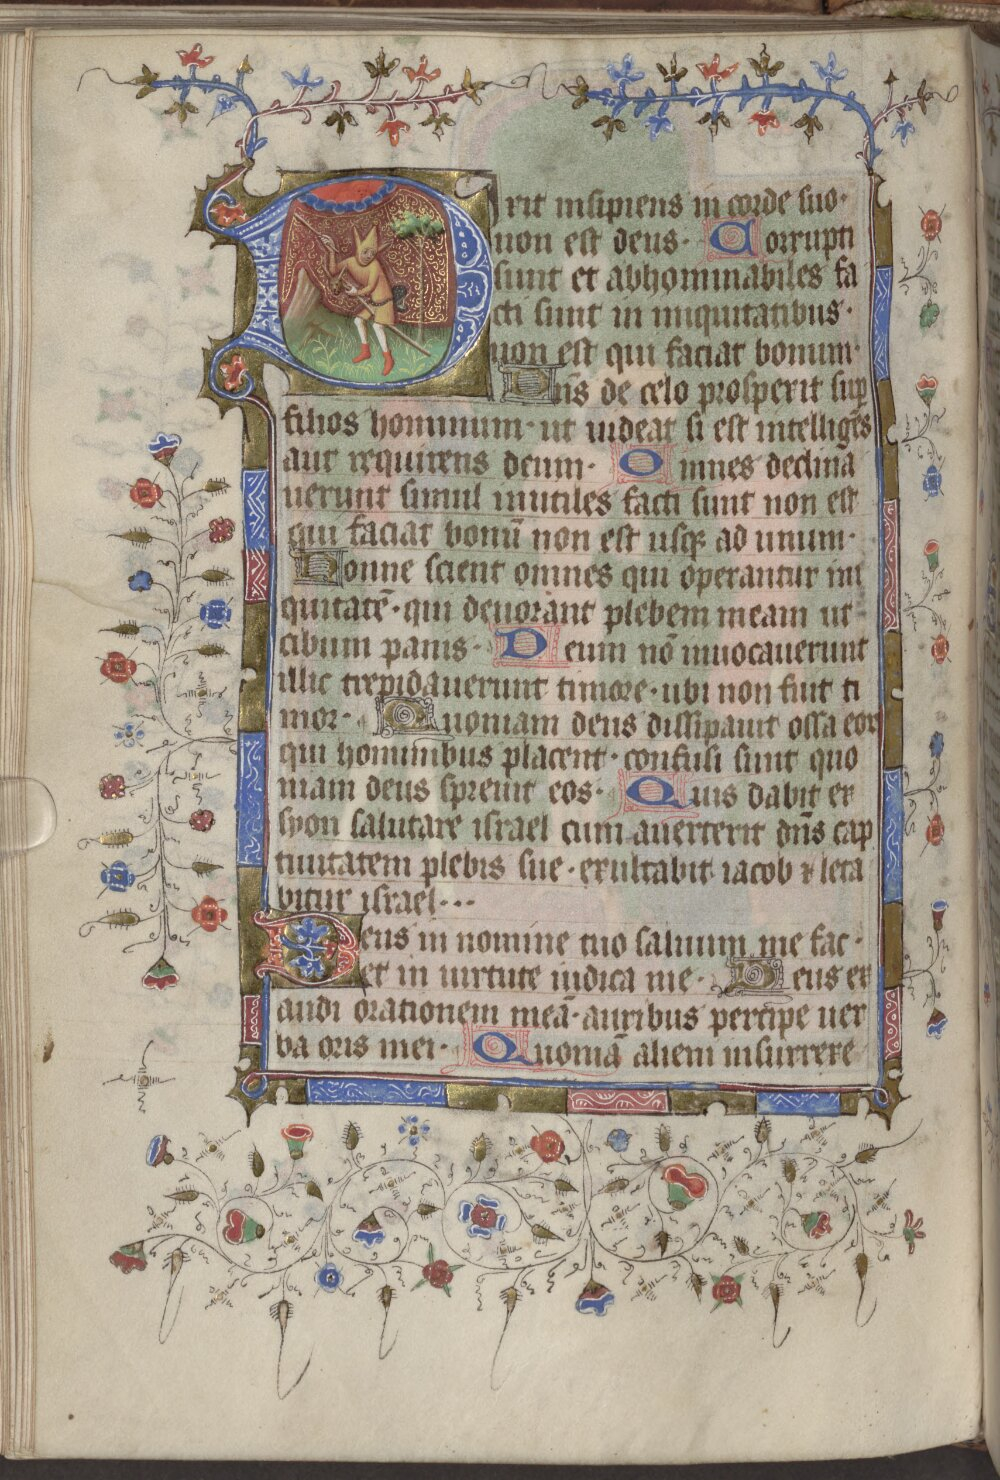 Dixit insipiens in corde suo·
non est deus· Corrupti
sunt et abhominabiles fa
cti sunt in iniquitatibus·
non est qui faciat bonum·
Dn̄s de celo prosperit sup̄
filios hominum· ut uideat si est intelligēs
aut requirens deum· Omnes declina
uerunt simul inutiles facti sunt non est
qui faciat bonū non est usqꝫ ad unum·
Nonne scient omnes qui operantur ini
quitatē· qui deuorant plebem meam ut
cibum panis· Deum nō inuocauerunt
illic trepidauerunt timore· ubi non fuit ti
mor· Quoniam deus dissipauit ossa eor
qui hominibus placent· confusi sunt quo
niam deus spreuit eos· Quis dabit ex
syon salutare israel cum auerterit dn̄s cap
tiuitatem plebis sue· exultabit iacob ⁊ leta
bitur israel···
Deus in nomine tuo saluum me fac·
et in uirtute iudica me· Deus ex
audi orationem meā· auribus percipe uer
ba oris mei· Quoniā alieni insurrexe